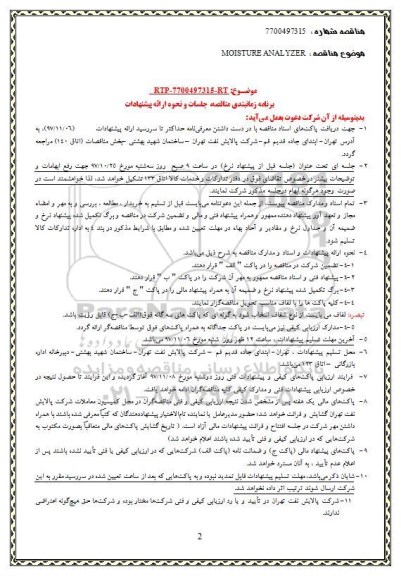 مناقصه شماره : 7700497315
موضوع مناقصه : MOISTURE ANALYZER
موضوع: RTP-7700497315-RT
برنامه زمانبندی مناقصه، جلسات و نحوه ارائه پیشنهادات
بدینوسیله از آن شرکت دعوت بعمل می‌آید:
۱- جهت دریافت پاکت‌های اسناد مناقصه با در دست داشتن معرفی‌نامه حداکثر تا سررسید ارائه پیشنهادات (۹۷/۱۱/۰۶)، به
آدرس تهران- ابتدای جاده قدیم قم- شرکت پالایش نفت تهران – ساختمان شهید بهشتی -بخش مناقصات (اتاق ۱۴۰) مراجعه
گردد.
۲- جلسه ای تحت عنوان (جلسه قبل از پیشنهاد نرخ) در ساعت ۹ صبح روز سه‌شنبه مورخ ۹۷/۱۰/۲۵ جهت رفع ابهامات و
توضیحات بیشتر درخصوص تقاضای فوق در دفتر تدارکات وخدمات کالا-اتاق ۱۲۳ تشکیل خواهد شد، لذا خواهشمند است در
صورت وجود هرگونه ابهام درجلسه مذکور شرکت نمایند.
۳- تمام اسناد ومدارک مناقصه پیوست، از جمله این دعوتنامه می‌بایست قبل از تسلیم به خریدار، مطالعه ، بررسی و به مهر و امضاء
مجاز و تعهد آور پیشنهاد دهنده ممهور و همراه پیشنهاد فنی و مالی و تضمین شرکت در مناقصه و برگ تکمیل شده پیشنهاد نرخ و
ضمیمه آن و جداول نرخ و مقادیر و آحاد بهاء در مهلت تعیین شده و مطابق با شرایط مذکور در بند ۴ به اداره تدارکات کالا
تسلیم شود.
۴- نحوه ارائه پیشنهادات و اسناد ومدارک مناقصه به شرح ذیل می‌باشد:
۴-۱- تضمین شرکت در مناقصه را در پاکت " الف " قرار دهند.
۴-۲- پیشنهاد فنی و اسناد مناقصه ممهور به مهر آن شرکت را در پاکت " ب " قرار دهند.
۴-۳- برگ تکمیل شده پیشنهاد نرخ و ضمیمه آن به همراه پیشنهاد مالی را در پاکت " ج " قرار دهند.
۴-۴- کلیه پاکت ها را با لفاف مناسب تحویل مناقصه‌گزار نمایند.
تبصره: لفاف می بایست از نوع شفاف انتخاب شود به گونه ای که پاکت های سه گانه فوق(الف-ب-ج) قابل رؤیت باشد.
۴-۵- مدارک ارزیابی کیفی نیز می‌بایست در پاکت جداگانه به همراه پاکت‌های فوق توسط مناقصه‌گر ارائه گردد.
۵- آخرین مهلت تسلیم پیشنهادات، ساعت ۱۲ ظهر روز شنبه مورخ ۹۷/۱۱/۰۶ می‌باشد.
۶- محل تسلیم پیشنهادات ، تهران- ابتدای جاده قدیم قم – شرکت پالایش نفت تهران- ساختمان شهید بهشتی- دبیرخانه اداره
بازرگانی – اتاق ۱۲۳ می‌باشد.
۷- فرایند ارزیابی پاکت‌های کیفی و پیشنهادات فنی روز دوشنبه مورخ ۹۷/۱۱/۰۸ آغاز گردیده و این فرآیند تا حصول نتیجه در
خصوص ارزیابی پیشنهادات فنی و مدارک کیفی کلیه مناقصه‌گران ادامه خواهد یافت.
۸- پاکت‌های مالی یک هفته پس از مشخص شدن نتیجه ارزیابی کیفی و فنی مناقصه‌گران در محل کمیسیون معاملات شرکت پالایش
نفت تهران گشایش و قرائت خواهد شد؛ حضور مدیرعامل یا نماینده تام‌الاختیار پیشنهاددهندگان که کتباً معرفی شده باشند با همراه
داشتن مهر شرکت در جلسه افتتاح و قرائت پیشنهادات مالی آزاد است. ( تاریخ گشایش پاکت‌های مالی متعاقباً بصورت مکتوب به
شرکت‌هایی که در ارزیابی کیفی و فنی تأیید شده باشند اعلام خواهد شد)
۹- پاکت‌های پیشنهاد مالی (پاکت ج) و ضمانت نامه (پاکت الف) شرکت‌هایی که در ارزیابی کیفی یا فنی تأیید نشده باشند پس از
اعلام عدم تأیید ، به آنان مسترد خواهد شد.
۱۰- شایان ذکر می‌باشد، مهلت تسلیم پیشنهادات قابل تمدید نبوده و به پاکت‌هایی که بعد از ساعت تعیین شده در سررسید مقرر به این
شرکت ارسال شوند ترتیب اثر داده نخواهد شد.
۱۱- شرکت پالایش نفت تهران در تأیید و یا رد ارزیابی کیفی و فنی شرکت‌ها مختار بوده و شرکت‌ها حق هیچگونه اعتراضی
ندارند.
2